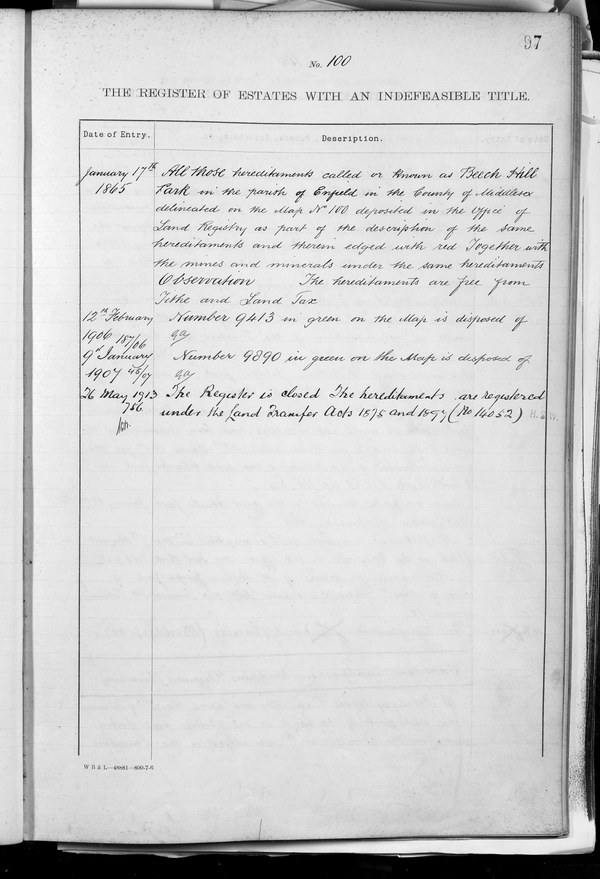 97
No. 100
THE REGISTER OF ESTATES WITH AN INDEFEASIBLE TITLE.
Date of Entry.
Description.
January 17th
1865
All those hereditaments called or known as Beech Hill
Park in the parish of Enfield in the County of Middlesex
delineated on the Map No 100 deposited in the Office of
Land Registry as part of the description of the same
hereditaments and therein edged with red Together with
the mines and minerals under the same hereditaments
Observation The hereditaments are free from
Tithe and Land Tax
12th February
1906 187/06
Number 9413 in green on the Map is disposed of
9th January
1907 46/07
Number 9890 in green on the Map is disposed of
26 May 1913
756
The Register is closed The hereditaments are registered
under the Land Transfer Acts 1875 and 1897 (No 14052)
W B & L—49881—800-7-6